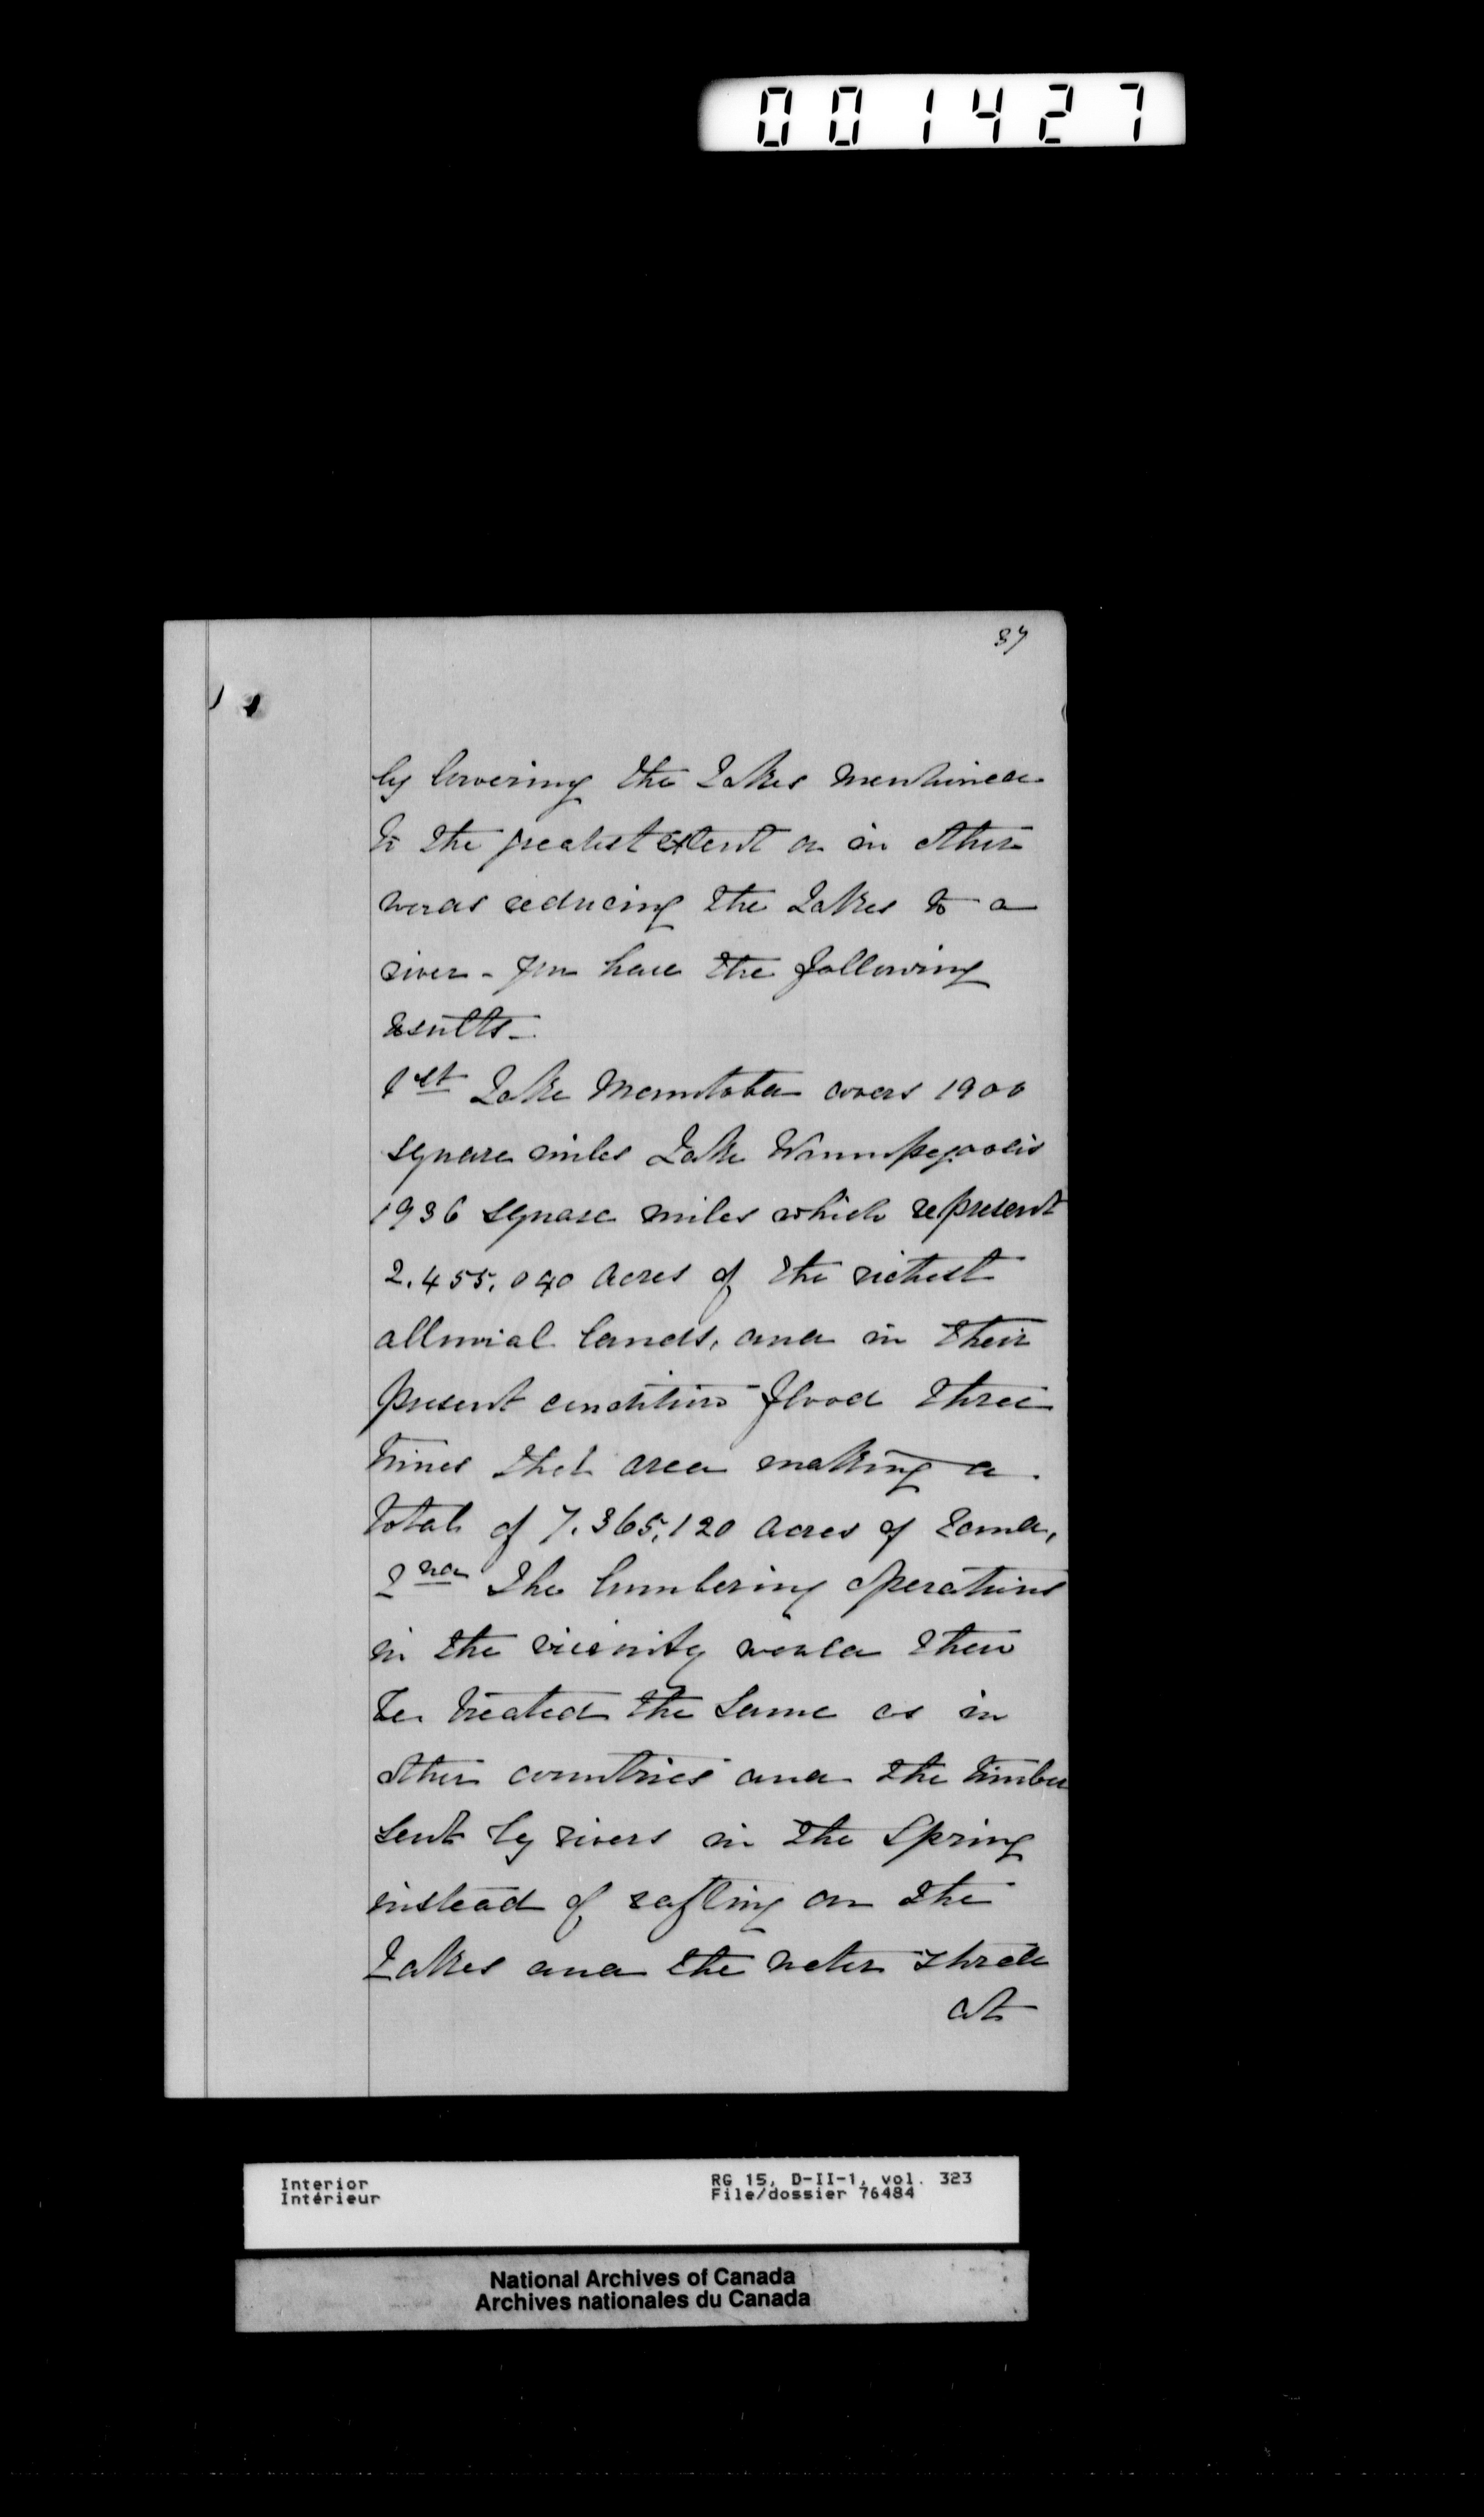 001427
37
by lowering the Lakes mentioned
to the greatest extent or in other
words reducing the Lakes to a
river - you have the following
results -
1st Lake Manitoba covers 1900
square miles Lake Winnipegoosis
1936 square miles which represent
2.455.040 acres of the richest
alluvial lands, and in their
present condition flood three
times that area making a
total of 7.365,120 acres of land,
2nd The lumbering operations
in the vicinity would then
be treated the same as in
other countries and the timber
sent by rivers in the Spring
instead of rafting on the
Lakes and the water
at
Interior RG 15, D-II-1, vol. 323
Intérieur File/dossier 76484
National Archives of Canada
Archives nationales du Canada